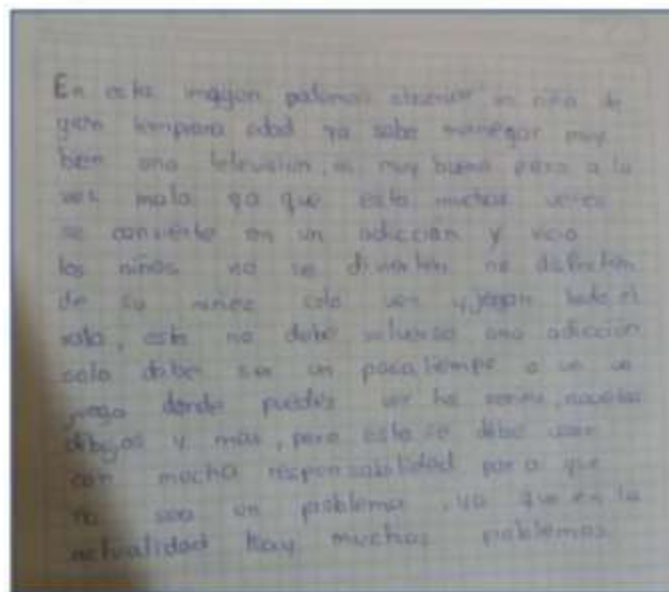 En esta imagen podemos observar un niño de
gran temprana edad ya sabe manegar muy
bien una television, es muy bueno pero a la
vez mala ya que esto muchas veces
se convierte en un adicción y vicio
los niños no se divierten no disfrutan
de su niñez solo ven y juegan todo el
rato, esto no debe volverse una adicción
solo debe ser un pasatiempo o un
juego donde puedes ver las series, novelas
dibujos y mas, pero esto se debe usar
con mucha responsabilidad para que
no sea un problema, ya que en la
actualidad hay muchos problemas